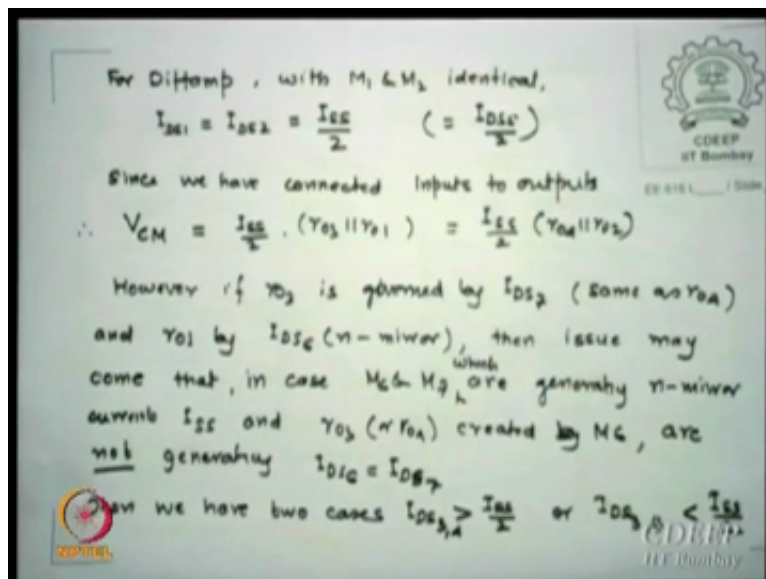 For Diffamp, with M1 & M2 identical,
IDS1 = IDS2 = ISS/2 (= IDS5/2)
Since we have connected Inputs to outputs
∴ VCM = ISS/2 . (r03 || r01) = ISS/2 (r04 || r02)
However if r03 is governed by IDS7 (same as r04)
and r01 by IDS6 (n-mirror), then issue may
come that, in case M6 & M7 which are generahy n-mirror
currents ISS and r03 (or r04) created by M6, are
not generating IDS6 = IDS7
we have two cases IDS3,4 > ISS/2 or IDS3 < ISS
CDEEP
IIT Bombay
EE 618 L____ / Slide
NPTEL
CDEEP
IIT Bombay